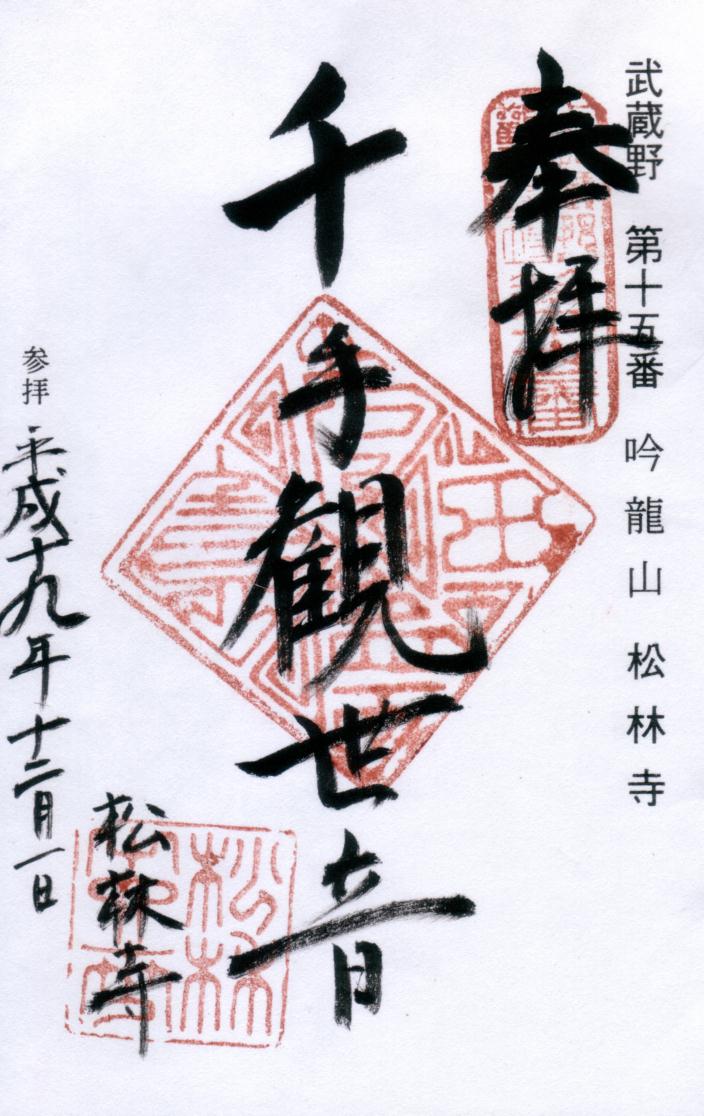 武蔵野 第十五番 吟龍山 松林寺
奉拝
千手観世音
松林寺
参拝 平成十九年十二月一日